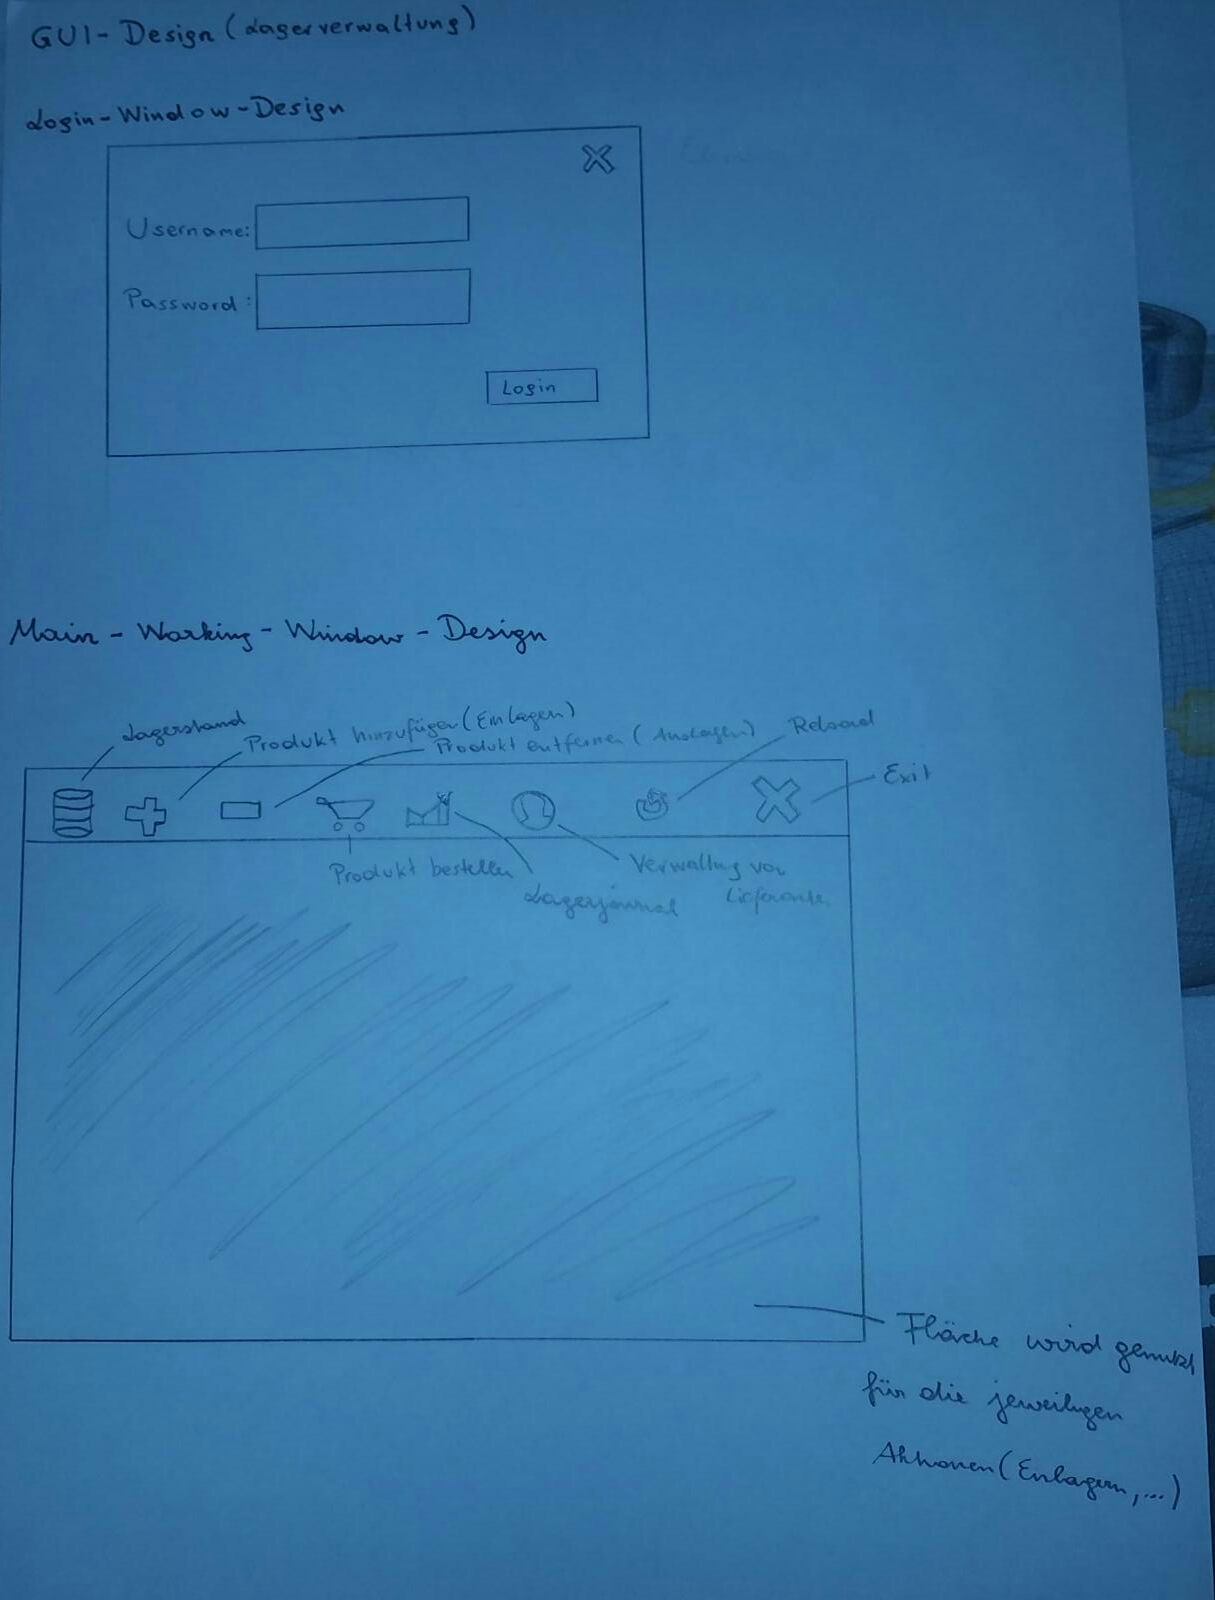 GUI-Design (Lagerverwaltung)
Login-Window-Design
Username:
Password:
Login
Main-Working-Window-Design
Lagerstand
Produkt hinzufügen (Einlagen)
Produkt entfernen (Auslagen)
Reload
Exit
Produkt bestellen
Lagerjournal
Verwaltung von
Lieferanten
Fläche wird genutzt
für die jeweiligen
Aktionen (Einlagern,...)